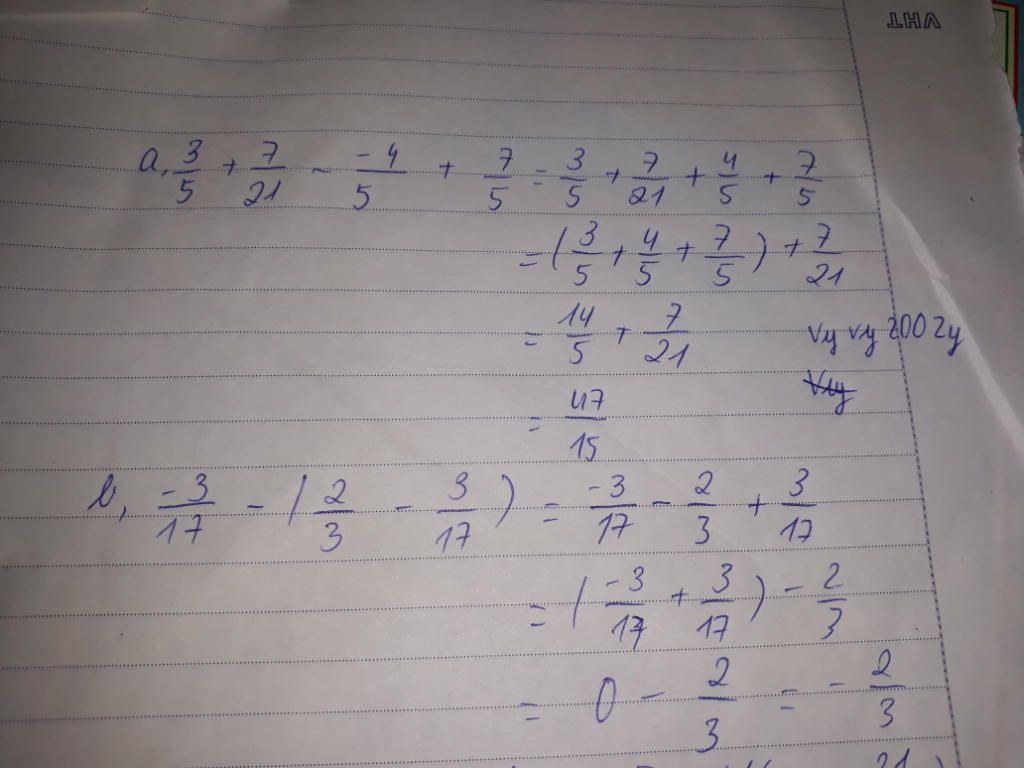 VHT
a, 3/5 + 7/21 - -4/5 + 7/5 = 3/5 + 7/21 + 4/5 + 7/5
= (3/5 + 4/5 + 7/5) + 7/21
= 14/5 + 7/21
vy vy 2002y
= 47/15
b, -3/17 - (2/3 - 3/17) = -3/17 - 2/3 + 3/17
= (-3/17 + 3/17) - 2/3
= 0 - 2/3 = -2/3